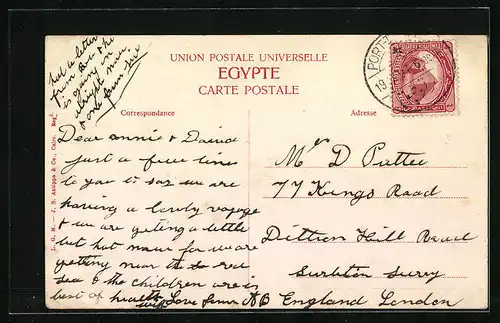 had a letter
from Bro & he
is going on
alright now
& one from Sue
UNION POSTALE UNIVERSELLE
EGYPTE
CARTE POSTALE
Correspondance
Adresse
PORT-
19
Dear annie & David
just a few lines
to you to say we are
having a lovely voyage
& we are geting a little
bit hot now for we are
getting near the red
sea & the children are in
best of health
with Love from A B
Mrs D Puttee
77 Kings Road
Dittion Hill Road
Surbiton Surry
England London
L. C. M. — J. S. Asippa & Co., Cairo. Reg.